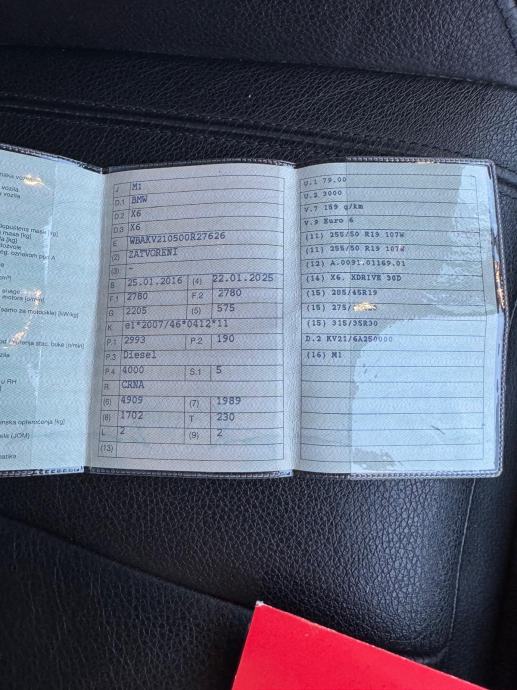 vozila
vozila
masa [kg]
masa [kg]
[kg]
A
snage
motora [o/min]
samo za motocikle) [kW/kg]
stac. buke [o/min]
u RH
opterećenja [kg]
(JOM)
J M1
D.1 BMW
D.2 X6
D.3 X6
E WBAKV210500R27626
(2) ZATVORENI
(3) -
B 25.01.2016 (4) 22.01.2025
F.1 2780 F.2 2780
G 2205 (5) 575
K e1*2007/46*0412*11
P.1 2993 P.2 190
P.3 Diesel
P.4 4000 S.1 5
R CRNA
(6) 4909 (7) 1989
(8) 1702 T 230
L 2 (9) 2
(13)
U.1 79.00
U.2 3000
V.7 159 g/km
V.9 Euro 6
(11) 255/50 R19 107W
(11) 255/50 R19 107W
(12) A.0091.01169.01
(14) X6. XDRIVE 30D
(15) 285/45R19
(15) 275/
(15) 315/35R30
D.2 KV21/6A250000
(16) M1